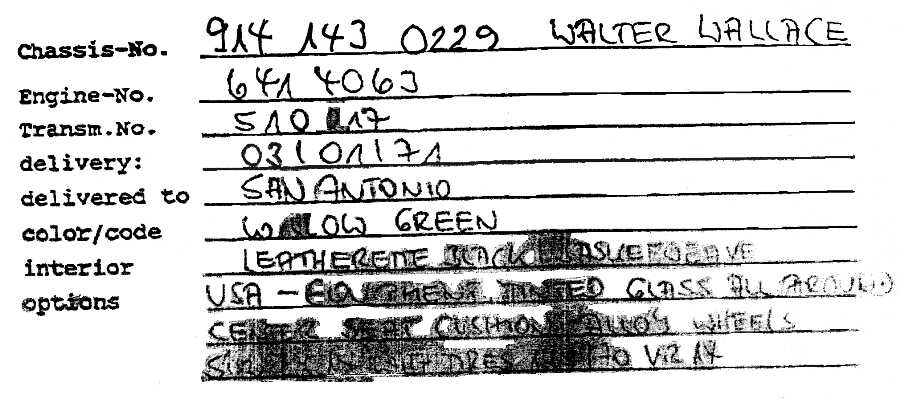 Chassis-No. 914 143 0229 WALTER WALLACE
Engine-No. 641 4063
Transm.No. 510 17
delivery: 03/01/71
delivered to SAN ANTONIO
color/code WILLOW GREEN
interior LEATHERETTE BLACK
options USA - EQUIPMENT TINTED GLASS ALL AROUND
CENTER SEAT CUSHION ALLOY WHEELS
VR 14